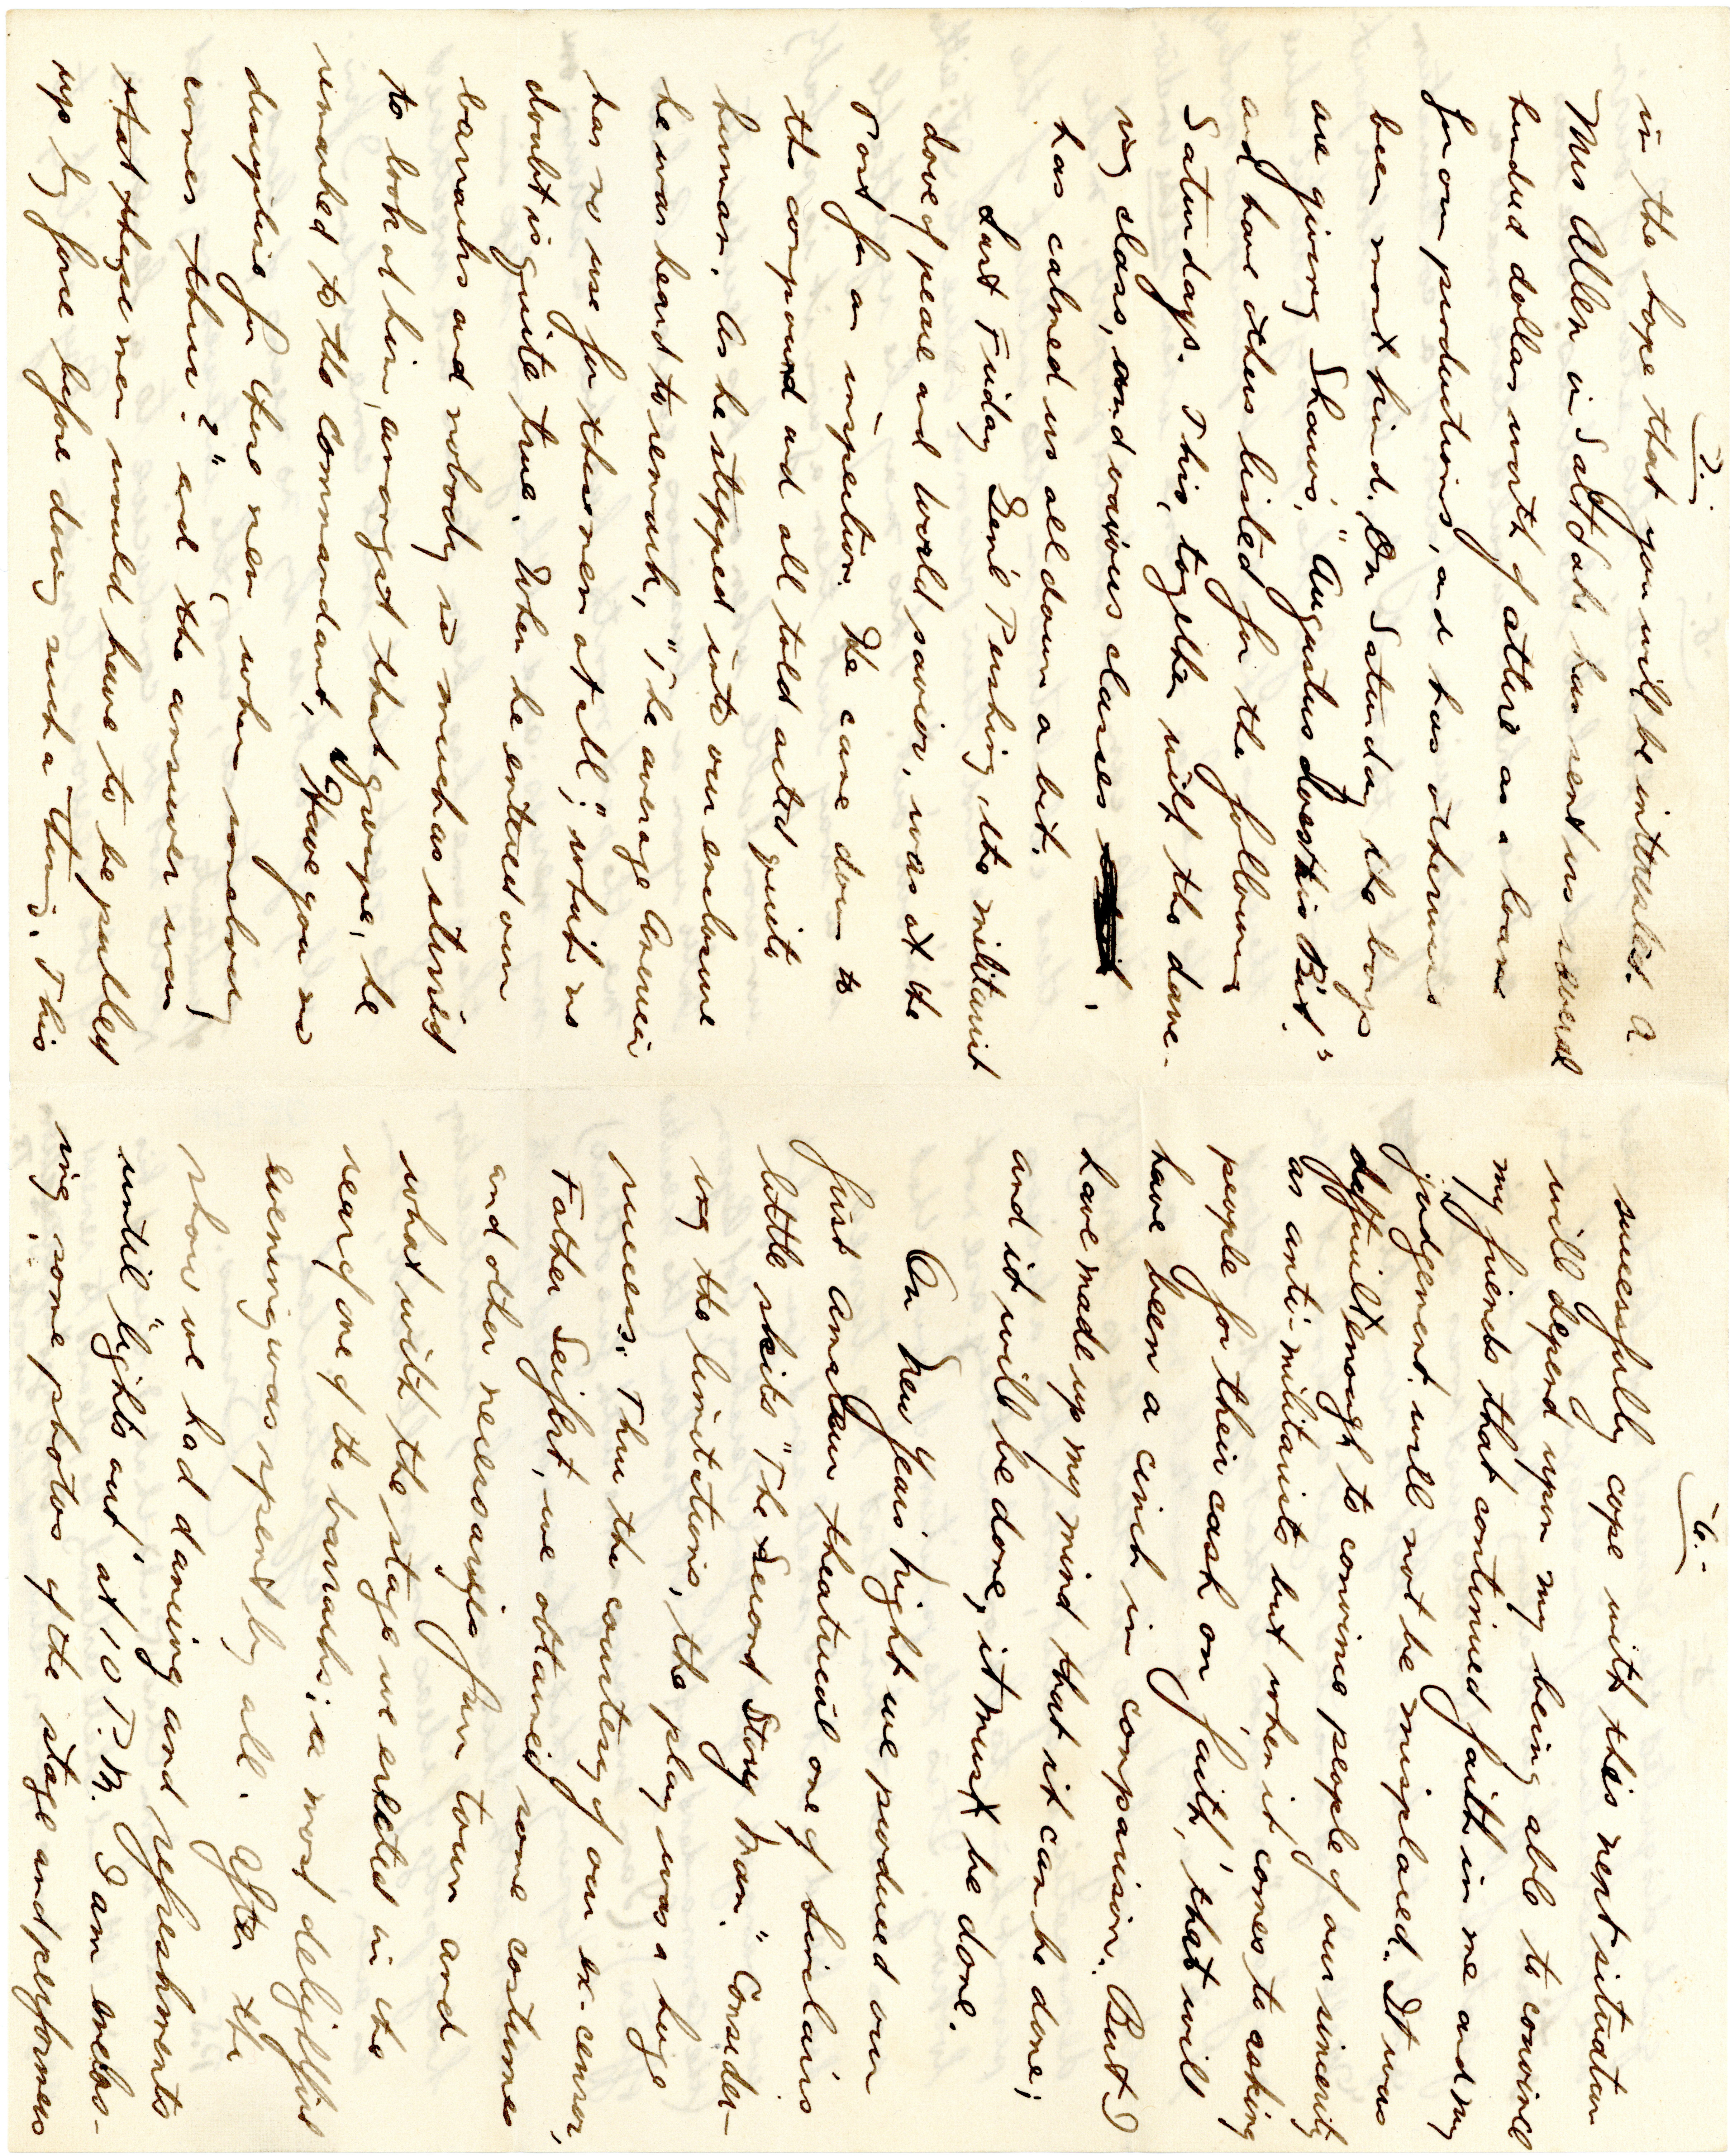 6.-
successfully cope with this next situation
will depend upon my being able to convince
my friends that continued faith in me and my
judgement will not be misplaced. It was
difficult enough to convince people of our sincerity
as anti-militarists but when it comes to asking
people for their cash on 'faith,' that will
have been a cinch in comparison. But I
have made up my mind that it can be done;
and it will be done, it must be done.
On New Years' night we produced our
first amateur theatrical one of Sinclairs
little skits "The Second Story Man." Consider-
ing the limitations, the play was a huge
success. Thru the courtesy of our ex-censor,
Father Seifert, we obtained some costumes
and other necessaries from town and
what with the stage we erected in the
rear of one of the barracks; a most delightful
evening was spent by all. After the
show we had dancing and refreshments
until "lights out" at 10 P.M. I am enclos-
ing some photos of the stage and performers
7.-
in the hope that you will be interested. A
Mrs Allen in Salt Lake has sent us several
hundred dollars worth of attire as a loan
for our productions, and has otherwise
been most kind. On Saturday the boys
are giving Shaws', "Augustus Does His Bit."
and have others listed for the following
Saturdays. This, together with the danc-
ing class, and various classes
has calmed us all down a bit.
Last Friday Gen'l Pershing, the militant
dove of peace and world savior, was at the
Fort for an inspection. He came down to
the compound and all told acted quite
human. As he stepped into our enclosure
he was heard to remark, "The average American
has no use for these men at all;" which no
doubt is quite true. When he entered our
barracks and nobody so much as stirred
to look at him, amongst that groupe, he
remarked to the commandant, "Have you no
discipline for these men, when somebody
comes thru?" and the answer was
that these men would have to be pulled
up by force before doing such a thing. This